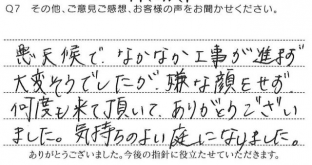 Q7 その他、ご意見ご感想、お客様の声をお聞かせください。
悪天候で、なかなか工事が進まず
大変そうでしたが、嫌な顔をせず、
何度も来て頂いて、ありがとうござい
ました。気持ちのよい庭になりました。
ありがとうございました。今後の指針に役立たせていただきます。